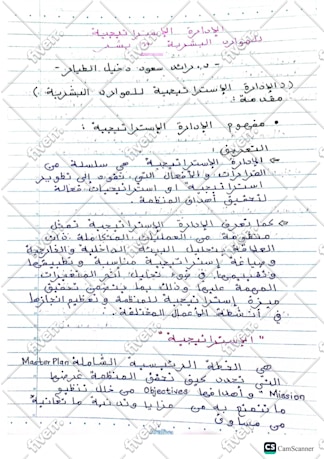 الإدارة الإستراتيجية
للموارد البشرية
- د. رائد سعود دخيل الطيار -
(( الإدارة الإستراتيجية للموارد البشرية ))
مقدمة :
• مفهوم الإدارة الإستراتيجية :
التعريف :
الإدارة الإستراتيجية هي سلسلة من
القرارات والأفعال التي تقود إلى تطوير
استراتيجية أو استراتيجيات فعالة
لتحقيق أهداف المنظمة .
كما تعرف الإدارة الإستراتيجية تمثل
منظومة من العمليات المتكاملة ذات
العلاقة بتحليل البيئة الداخلية والخارجية
وصياغة إستراتيجية مناسبة وتطبيقها
وتقييمها في ضوء تحليل أثر المتغيرات
المهمة عليها وذلك بما يضمن تحقيق
ميزة إستراتيجية للمنظمة وتعظيم إنجازها
في أنشطة الأعمال المختلفة .
" الإستراتيجية "
هي الخطة الرئيسية الشاملة Master Plan
التي تحدد كيف تحقق المنظمة غرضها
Mission وأهدافها Objectives من خلال تنظيم
ما تتمتع به من مزايا وتدنية ما تعانية
من مساوئ
fiverr
CS CamScanner